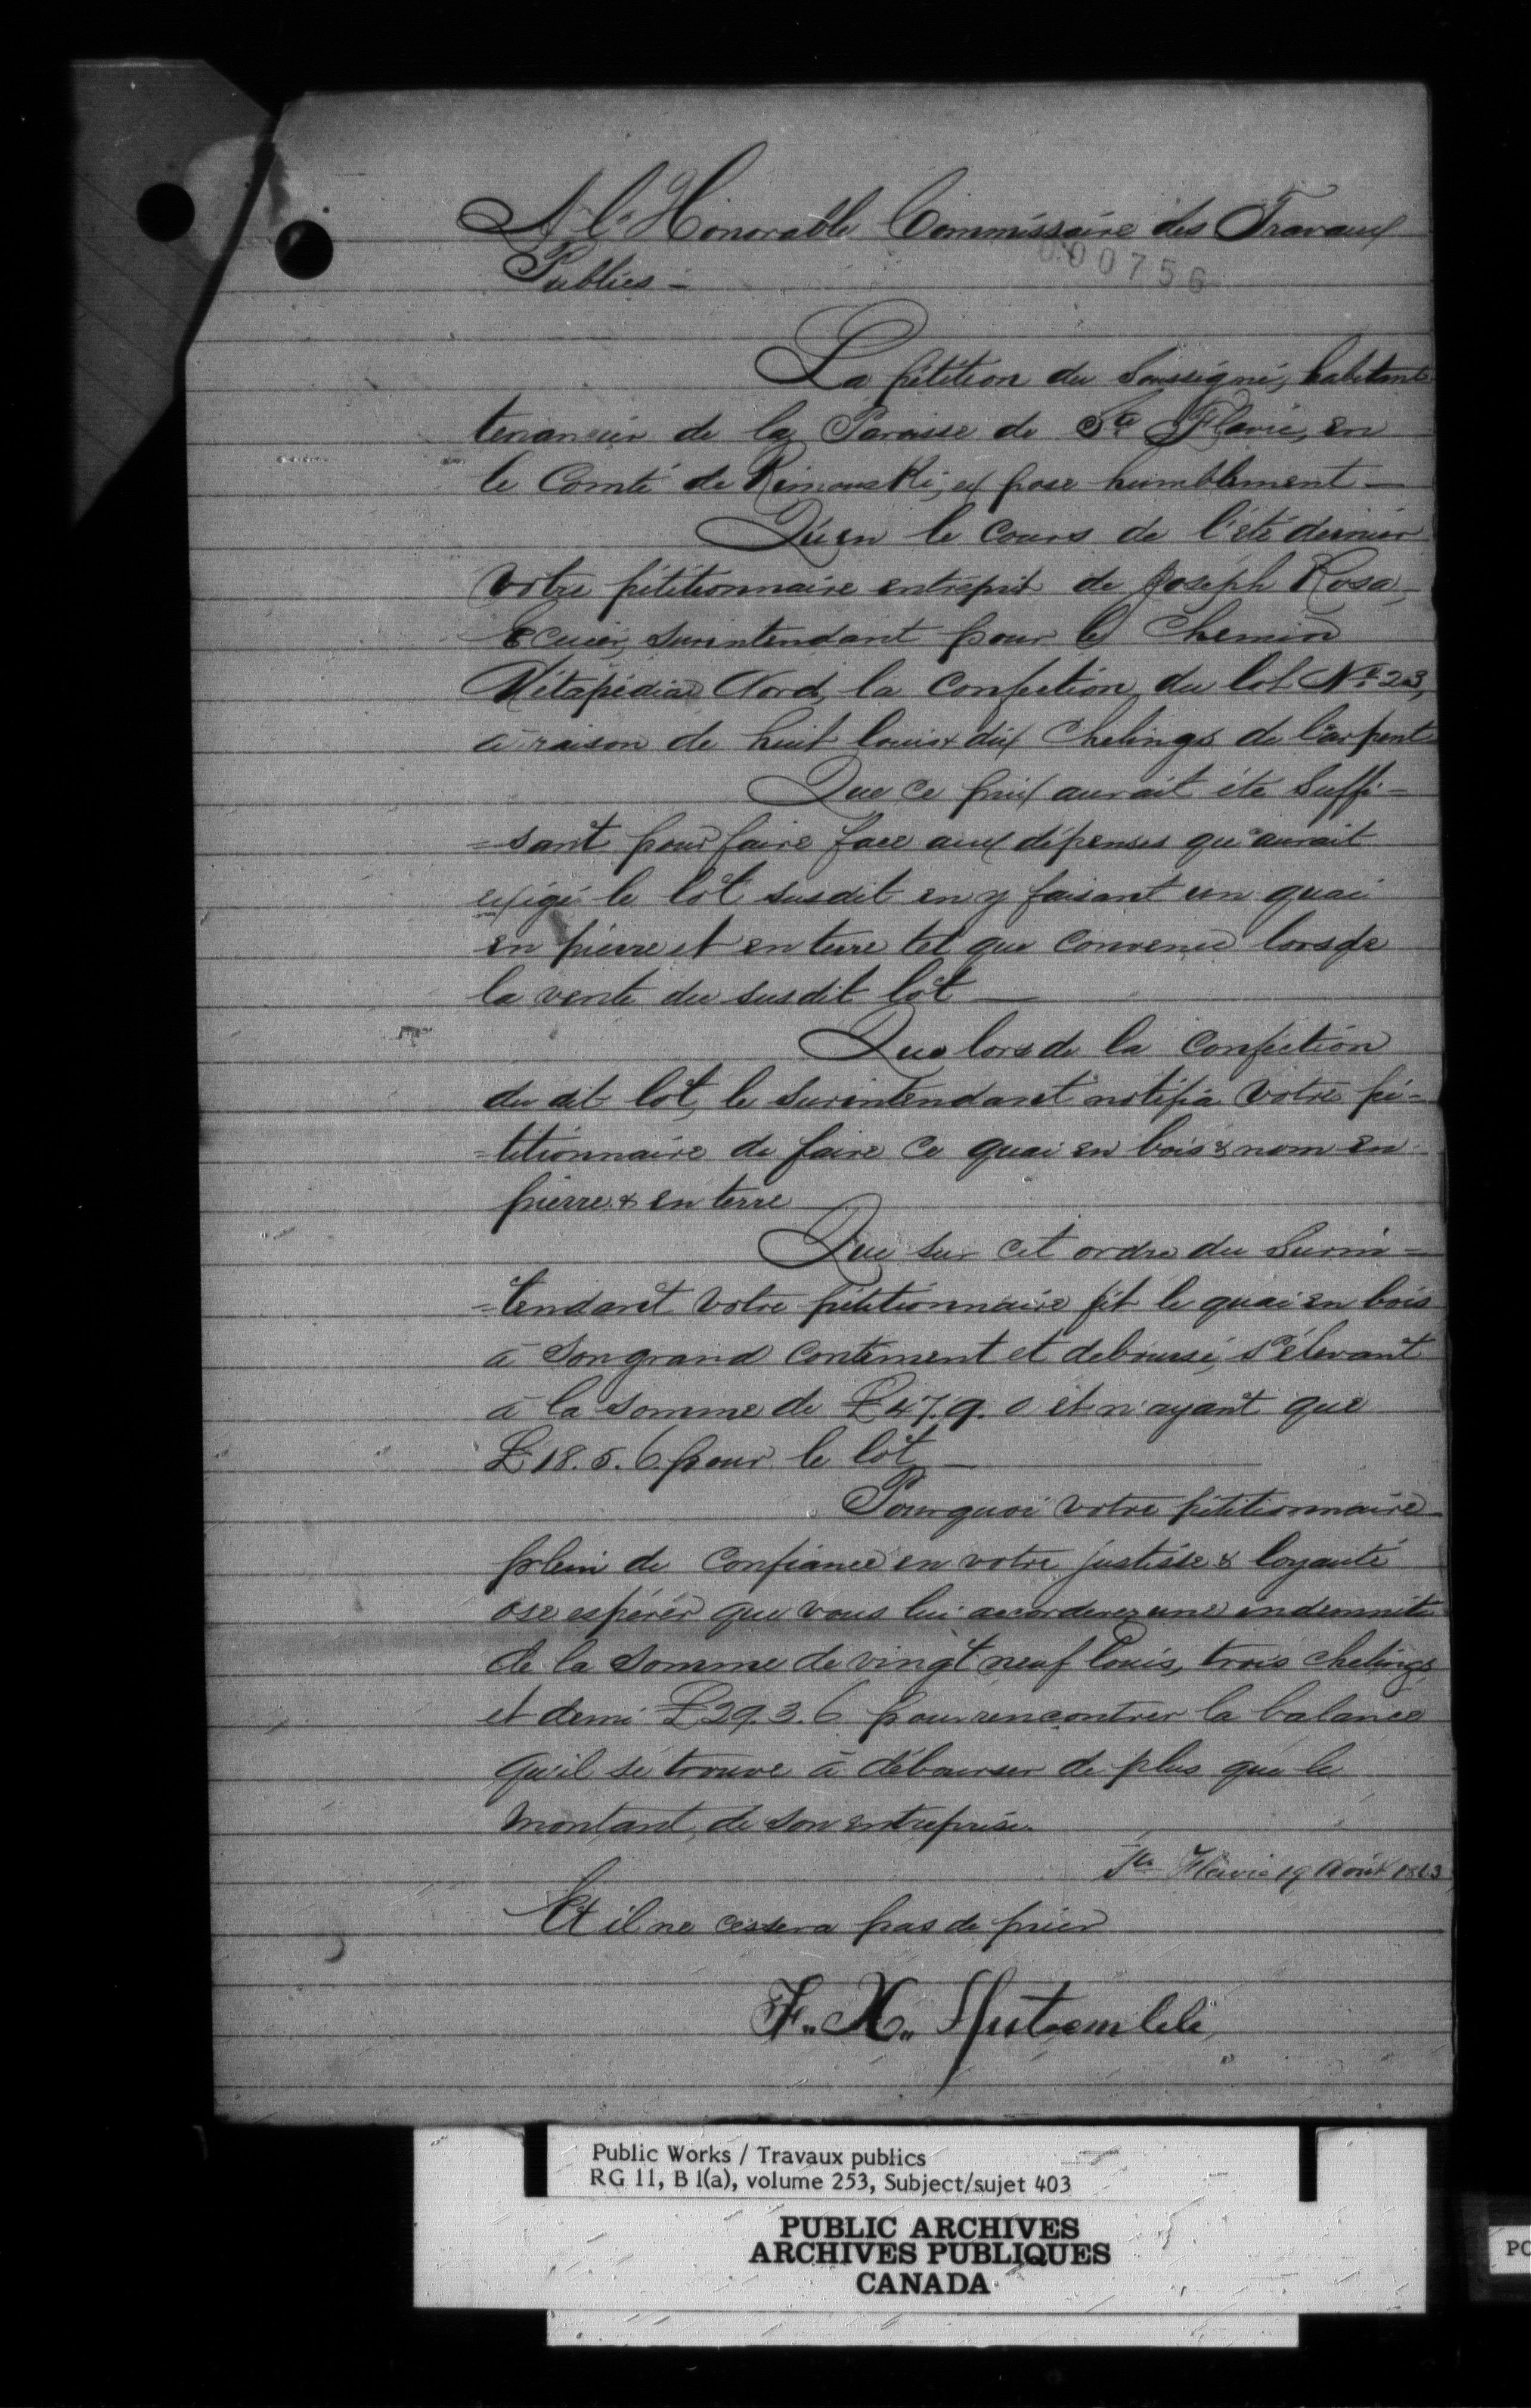 A l'Honorable Commissaire des Travaux
000756
Publics -
La pétition du Soussigné, habitant
tenancier de la Paroisse de Ste Flavie, en
le Comté de Rimouski, expose humblement —
Qu'en le cours de l'été dernier
Votre pétitionnaire entreprit de Joseph Rosa,
Ecuier, Surintendant pour le Chemin
Métapédiac Nord, la confection du lot No. 23,
à raison de huit louis & dix Chelings de l'arpent
Que ce prix aurait été Suffi=
=sant pour faire face aux dépenses qu'aurait
exigé le lot susdit en y faisant un quai
en pierre et en terre tel que convenu lors de
la vente du susdit lot —
Que lors de la confection
du dit lot, le Surintendant notifia votre pé=
=titionnaire de faire ce quai en bois & nom en
pierre & en terre
Que sur cet ordre du Surin=
=tendant Votre pétitionnaire fit le quai en bois
à Son grand contement et deboursé, s'élevant
à la Somme de £47.9.0 et n'ayant que
£18.5.6 pour le lot —
Pourquoi votre pétitionnaire
plein de Confiance en votre justisse & loyauté
ose espérér que vous lui accorderez une indemnité
de la Somme de vingt neuf louis, trois chelings
et demi £29.3.6 pour rencontrer la balance
qu'il se trouve à débourser de plus que le
Montant de son entreprise.
Ste Flavie 19 Août 1863
Et il ne cessera pas de prier
F. X.
Public Works / Travaux publics
RG 11, B 1(a), volume 253, Subject/sujet 403
PUBLIC ARCHIVES
ARCHIVES PUBLIQUES
CANADA
PO